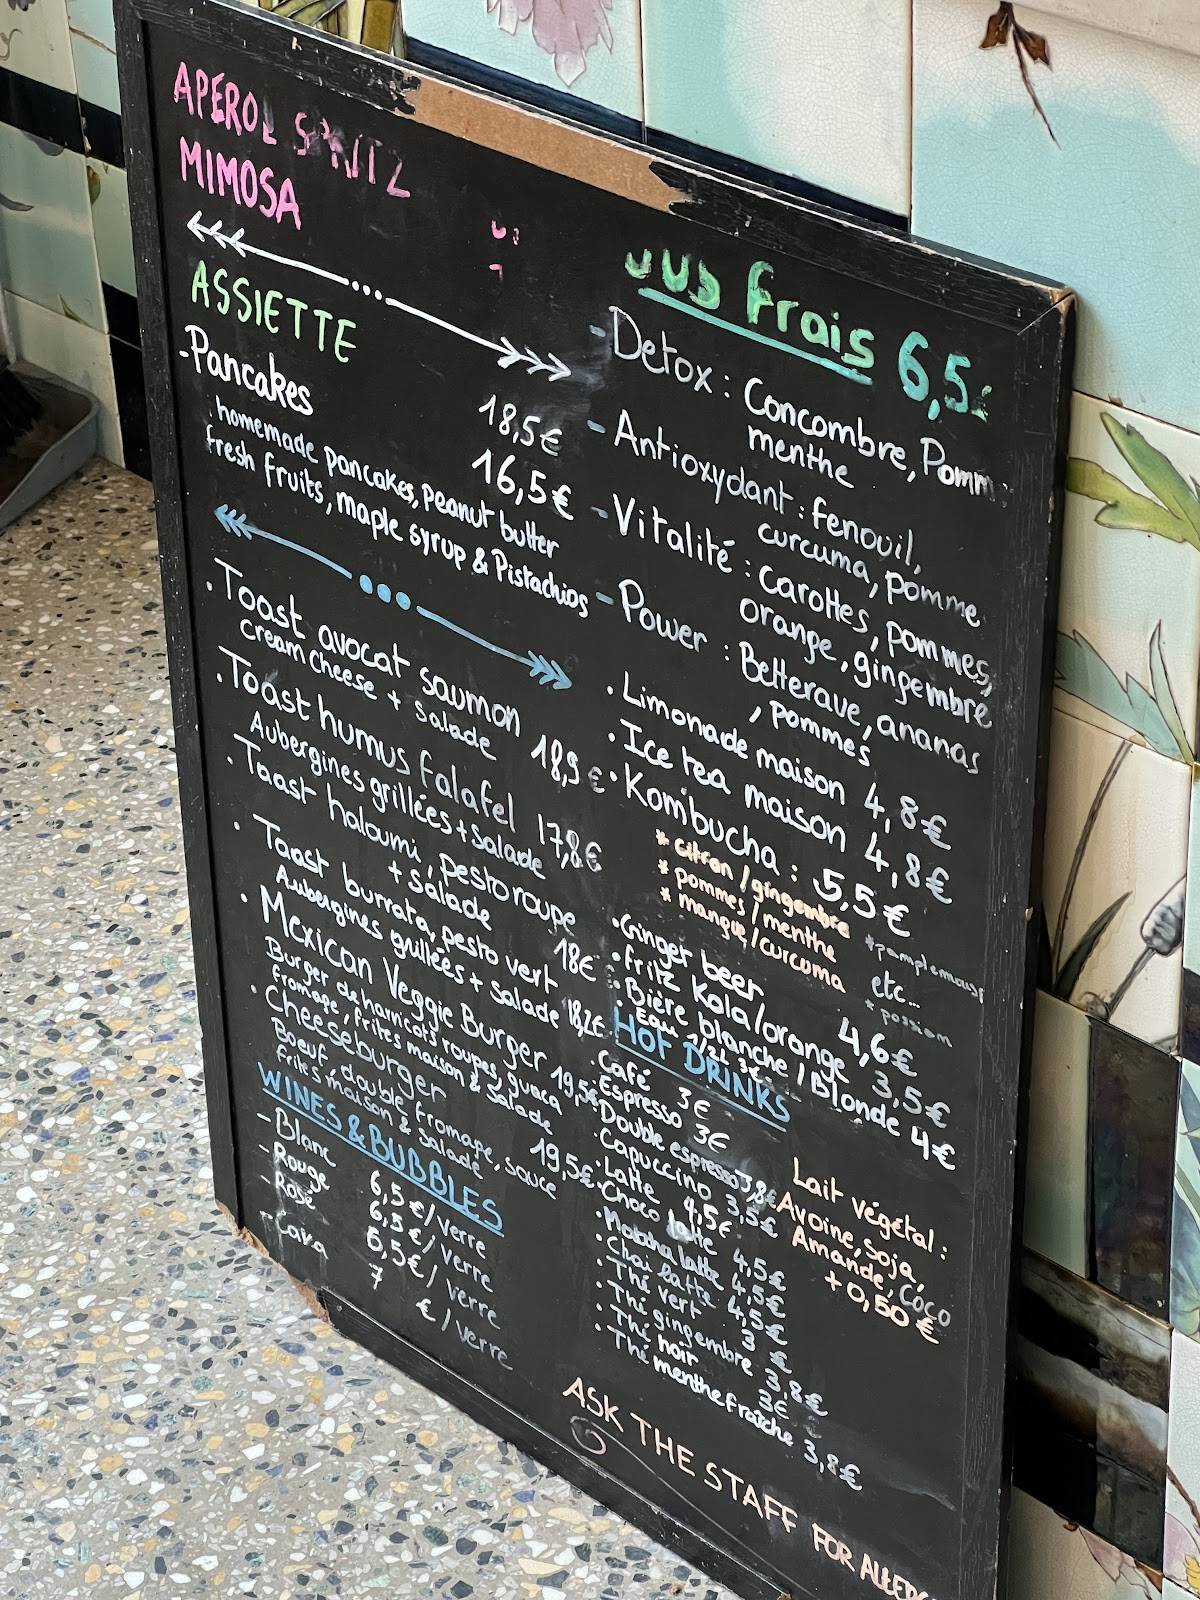 APEROL SPRITZ
MIMOSA
ASSIETTE 18,5€
-Pancakes 16,5€
homemade pancakes, peanut butter
fresh fruits, maple syrup & Pistachios
. Toast avocat saumon 18,9€
cream cheese + salade
. Toast humus falafel 17,8€
Aubergines grillées + salade
. Toast haloumi, pesto roupe 18€
+ salade
. Toast burrata, pesto vert 18,2€
Aubergines grillées + salade
. Mexican Veggie Burger 19,5€
Burger de harricots roupes, guaca
fromage, frites maison & salade
. Cheeseburger 19,5€
Boeuf, double fromage, sauce
frites maison & salade
WINES & BUBBLES
- Blanc 6,5€/verre
- Rouge 6,5€/verre
- Rosé 6,5€/verre
- Cava 7 €/verre
Jus frais 6,5€
- Detox : Concombre, Pomm
menthe
- Antioxydant : fenouil,
curcuma, pomme
- Vitalité : carottes, pommes,
orange, gingembre
- Power : Betterave, ananas
, pommes
. Limonade maison 4,8€
. Ice tea maison 4,8€
. Kombucha : 5,5€
* citron/gingembre
* pommes/menthe
* mangue/curcuma
*pamplemouss
etc...
* passion
. Ginger beer 4,6€
. fritz Kola/orange 3,5€
. Bière blanche/Blonde 4€
. Eau 1/2L 3€
HOT DRINKS
. Café 3€
. Espresso 3€
. Double espresso 3,8€
. Capuccino 3,5€
. Latte 4,5€
. Choco latte 4,5€
. Matcha latte 4,5€
. Chai latte 4,5€
. Thé vert 3 €
. Thé gingembre 3,8€
. Thé noir 3€
. Thé menthe fraîche 3,8€
Lait végétal :
Avoine, soja,
Amande, Coco
+ 0,50€
ASK THE STAFF FOR ALLERG